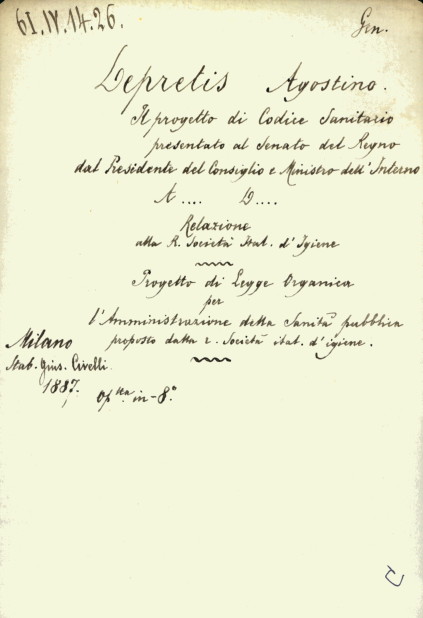 61.IV.14.26.
Gen.
Depretis Agostino.
Il progetto di Codice Sanitario
presentato al Senato del Regno
dal Presidente del Consiglio e Ministro dell'Interno
A .... D ....
Relazione
alla R. Società Ital. d'Igiene
Progetto di Legge Organica
per
l'Amministrazione della Sanità pubblica
proposto dalla r. Società ital. d'igiene.
Milano
Stab. Gius. Civelli.
1887.
Op.ta in-8.°